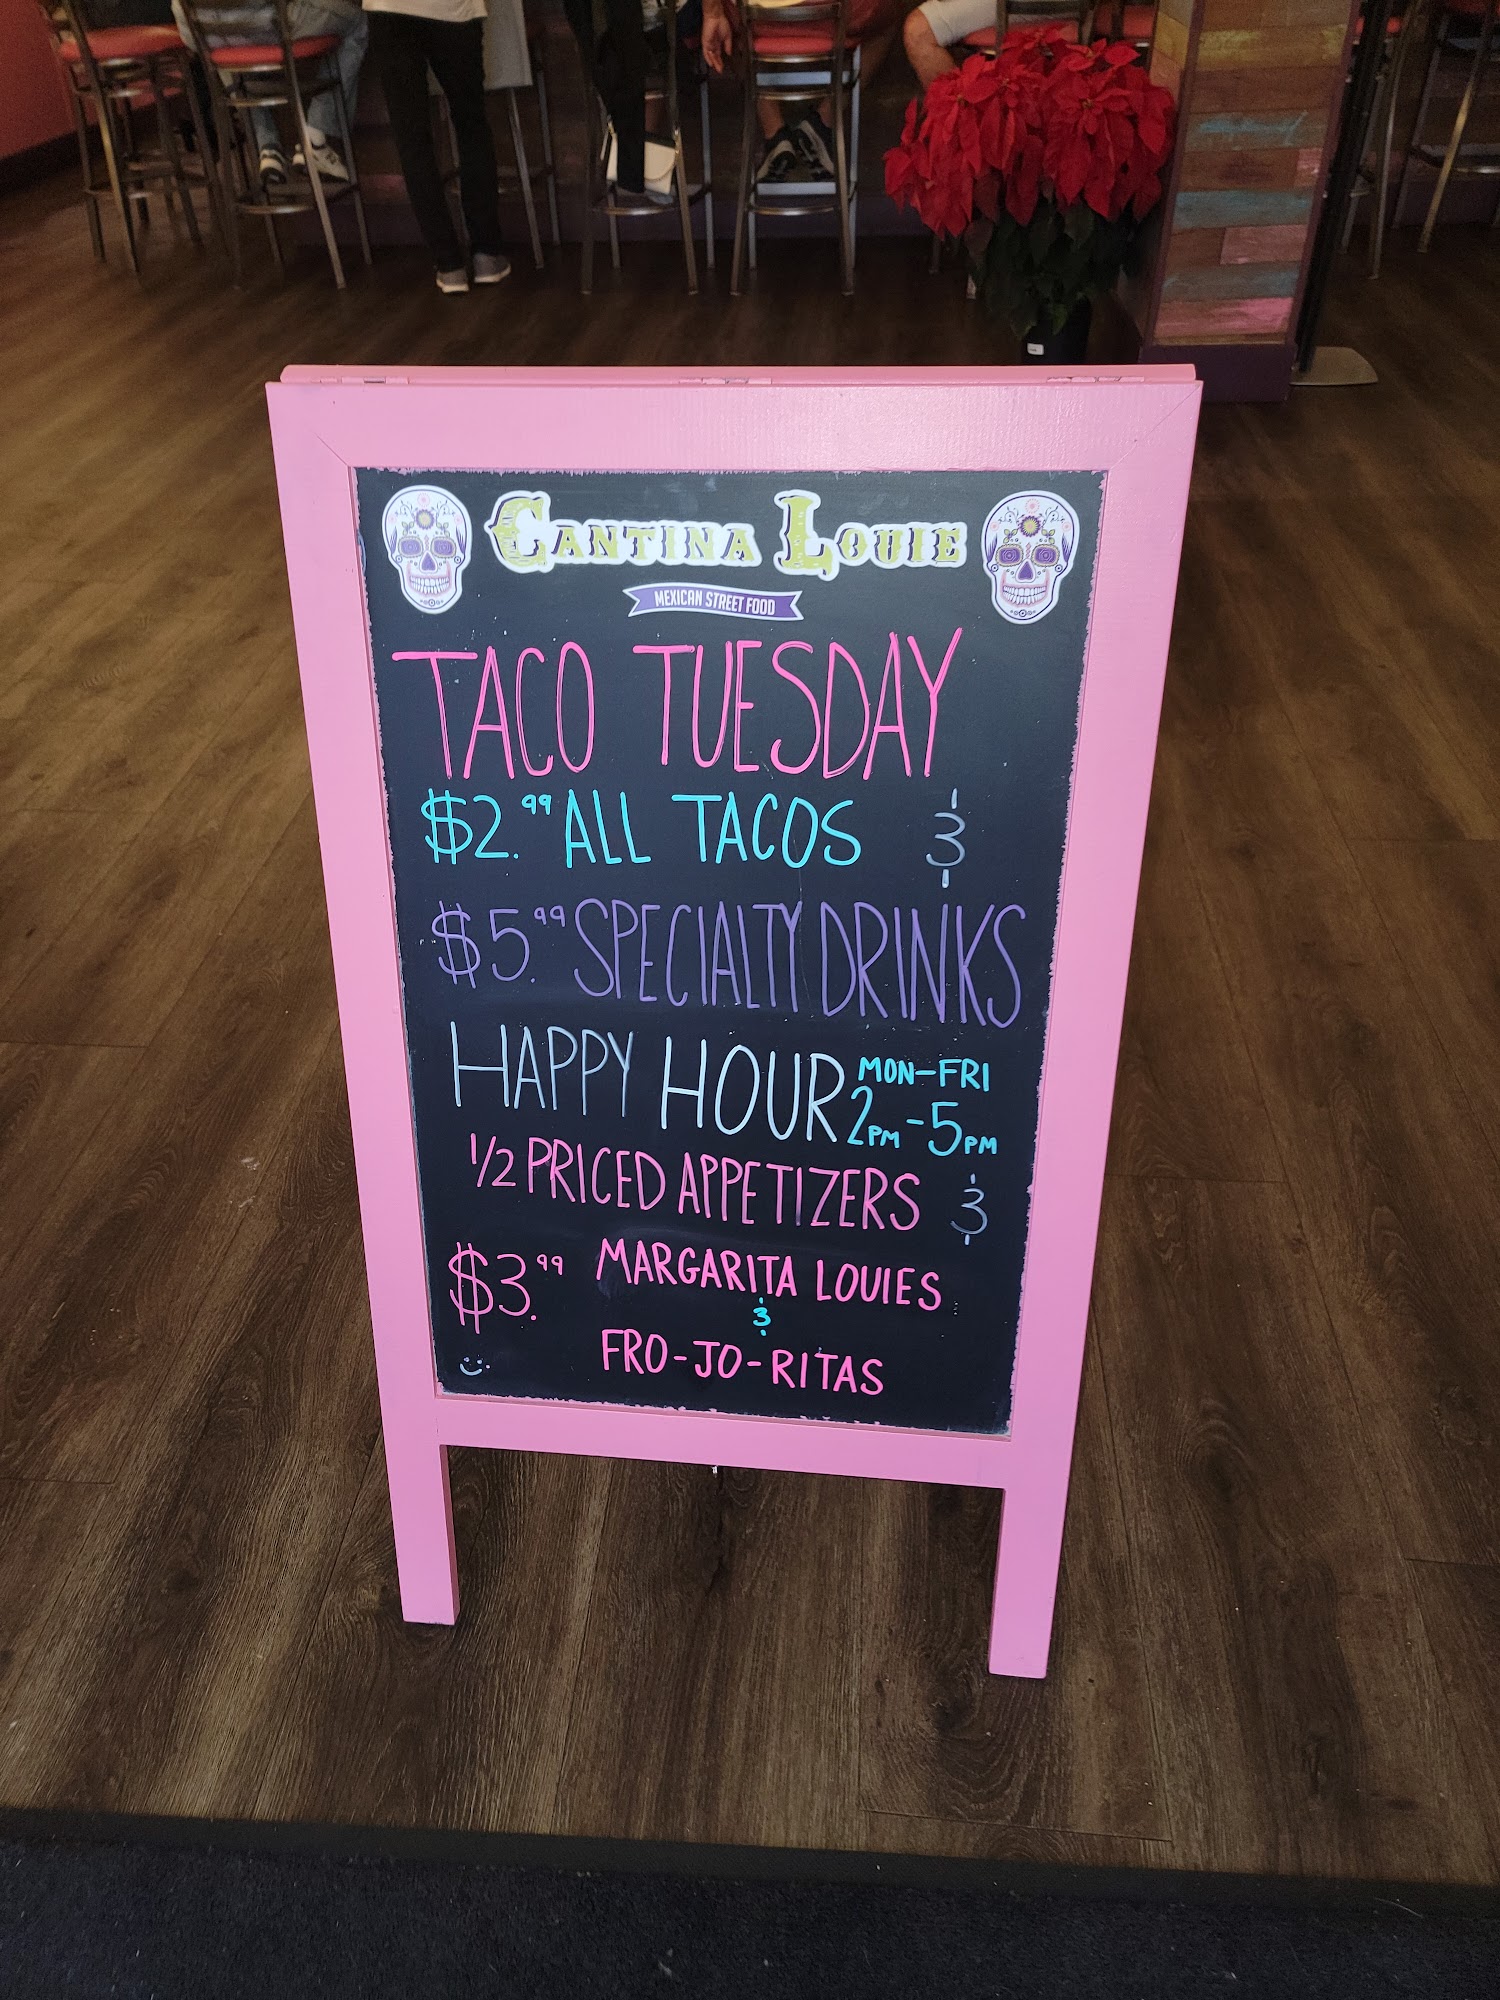 CANTINA LOUIE
MEXICAN STREET FOOD
TACO TUESDAY
$2.99 ALL TACOS &
$5.99 SPECIALTY DRINKS
HAPPY HOUR MON-FRI
2PM-5PM
1/2 PRICED APPETIZERS &
$3.99 MARGARITA LOUIES
&
FRO-JO-RITAS